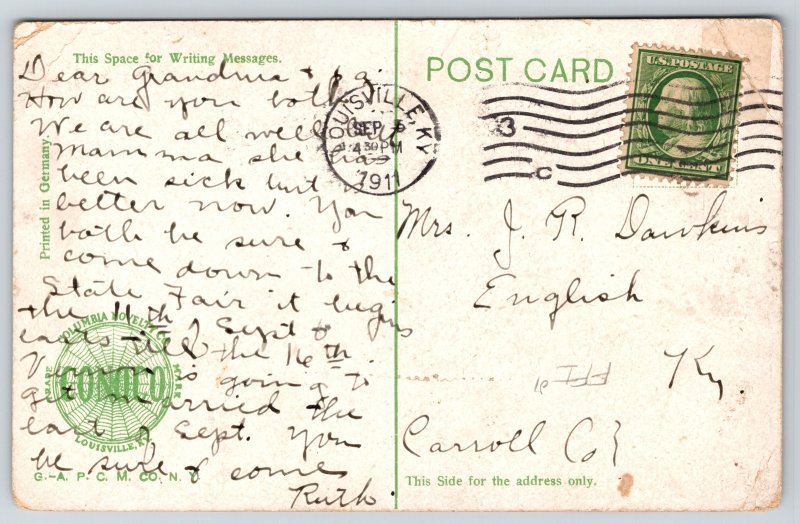 This Space for Writing Messages.
Dear Grandma &
How are you both
We are all well but
Mamma she has
been sick but
better now. You
both be sure &
come down to the
State Fair it begins
the 11th of Sept &
lasts till the 16th.
Vernon is going to
get married the
last of Sept. You
be sure & come
Ruth
Printed in Germany.
COLUMBIA NOVELTY CO.
TRADE
CONOCO
MARK
LOUISVILLE, KY.
G.-A. P. C. M. CO. N. Y.
POST CARD
LOUISVILLE, KY
SEP 5
4 30 PM
1911
3
C
U.S. POSTAGE
ONE CENT
Mrs. J. R. Dawkins
English
Ky.
Carroll Co
This Side for the address only.